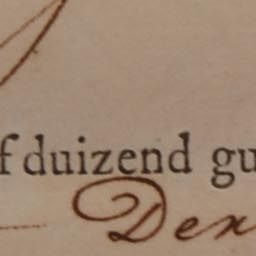 f duizend gu
Den